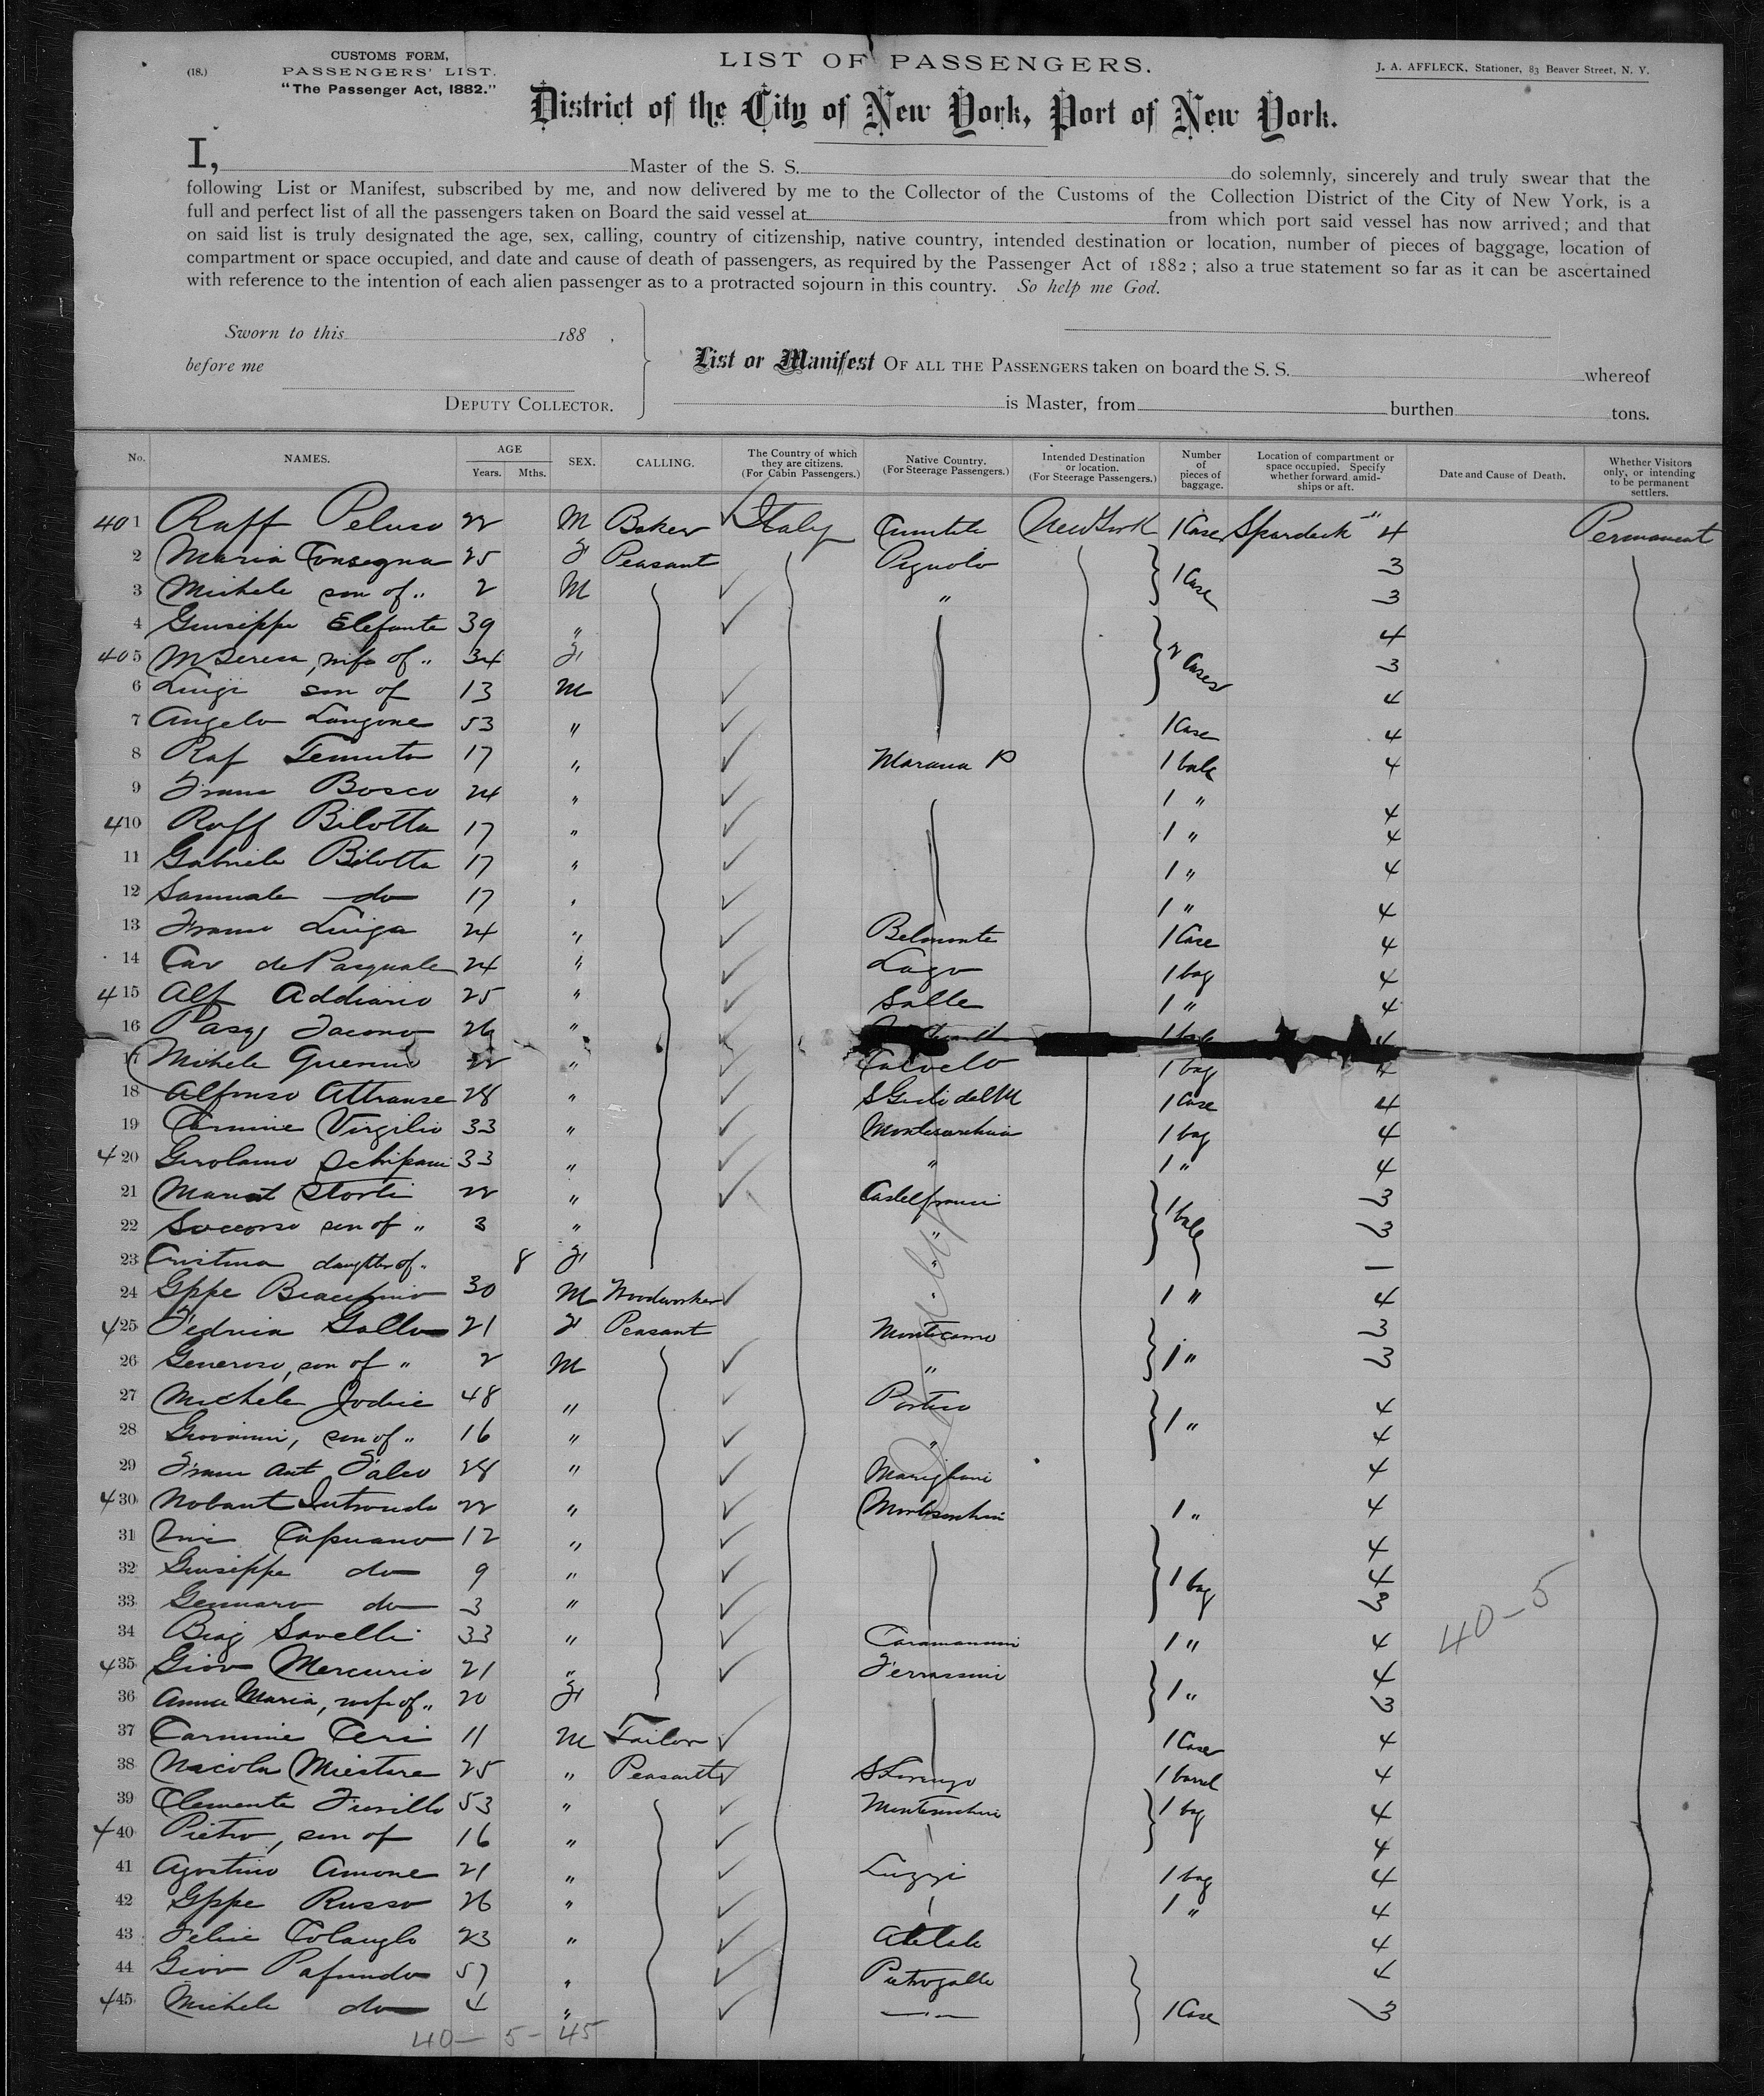 (18.)
CUSTOMS FORM,
PASSENGERS' LIST.
"The Passenger Act, 1882."
LIST OF PASSENGERS.
J. A. AFFLECK, Stationer, 83 Beaver Street, N. Y.
District of the City of New York, Port of New York.
I, Master of the S. S. do solemnly, sincerely and truly swear that the
following List or Manifest, subscribed by me, and now delivered by me to the Collector of the Customs of the Collection District of the City of New York, is a
full and perfect list of all the passengers taken on Board the said vessel at from which port said vessel has now arrived; and that
on said list is truly designated the age, sex, calling, country of citizenship, native country, intended destination or location, number of pieces of baggage, location of
compartment or space occupied, and date and cause of death of passengers, as required by the Passenger Act of 1882; also a true statement so far as it can be ascertained
with reference to the intention of each alien passenger as to a protracted sojourn in this country. So help me God.
Sworn to this 188 .
before me
DEPUTY COLLECTOR.
List or Manifest OF ALL THE PASSENGERS taken on board the S. S. whereof
is Master, from burthen tons.
No. NAMES. AGE Years. Mths. SEX. CALLING. The Country of which they are citizens. (For Cabin Passengers.) Native Country. (For Steerage Passengers.) Intended Destination or location. (For Steerage Passengers.) Number of pieces of baggage. Location of compartment or space occupied. Specify whether forward, amidships or aft. Date and Cause of Death. Whether Visitors only, or intending to be permanent settlers.
401 Raff Peluso 22 M Baker Italy New York 1 Case Spardeck 4 Permanent
2 Maria Consegna 25 F Peasant Pignolo 1 Case 3
3 Michele son of " 2 M " 3
4 Giuseppe Elefante 39 " 2 Cases 4
405 M Teresa, wife of " 34 F 3
6 Luigi son of 13 M 4
7 Angelo Langone 53 " 1 Case 4
8 Raf 17 " Marana P 1 bale 4
9 Franc Bosco 24 " 1 " 4
410 Raff Bilotta 17 " 1 " 4
11 Gabriele Bilotta 17 " 1 " 4
12 Samuele do 17 " 1 " 4
13 Franc Luiga 24 " Belmonte 1 Case 4
14 Car de Pasquale 24 " Lago 1 bag 4
415 Alf Addiario 25 " Salle 1 " 4
16 Pasq Iacono 26 " 4
17 Michele 22 " Calvello 1 bag 4
18 Alfonso Attranse 28 " 1 Case 4
19 Carmine Virgilio 33 " Montesarchio 1 bag 4
420 Girolamo Schipani 33 " " 1 " 4
21 Storti 22 " Castelfranci 1 bale 3
22 Soccorso son of " 3 " " 3
23 Cristina daughter of " 8 F " 1
24 Gppe 30 M Woodworker 1 " 4
425 Gallo 21 F Peasant 1 " 3
26 Generoso, son of " 2 M " 3
27 Michele 48 " Portico 1 " 4
28 Giovanni, son of " 16 " " 4
29 Franc Ant Falco 28 " 4
430 22 " 1 " 4
31 Capuano 12 " 1 bag 4
32 Giuseppe do 9 " 4
33 Gennaro do 3 " 3
34 Biag Savelli 33 " 1 " 4
435 Giov Mercurio 21 " 1 " 4
36 Anna Maria, wife of " 20 F 3
37 Carmine Ceri 11 M Tailor 1 Case 4
38 Nicola 25 " Peasant S Lorenzo 1 barrel 4
39 Clemente 53 " 1 bag 4
440 Pietro, son of 16 " 4
41 Agostino Amone 21 " Luzzi 1 bag 4
42 Gppe Russo 26 " 1 " 4
43 Felice Colanglo 23 " 4
44 Giov Pafundo 57 " 1 Case 4
445 Michele do 4 " 3
40-5
40-5-45